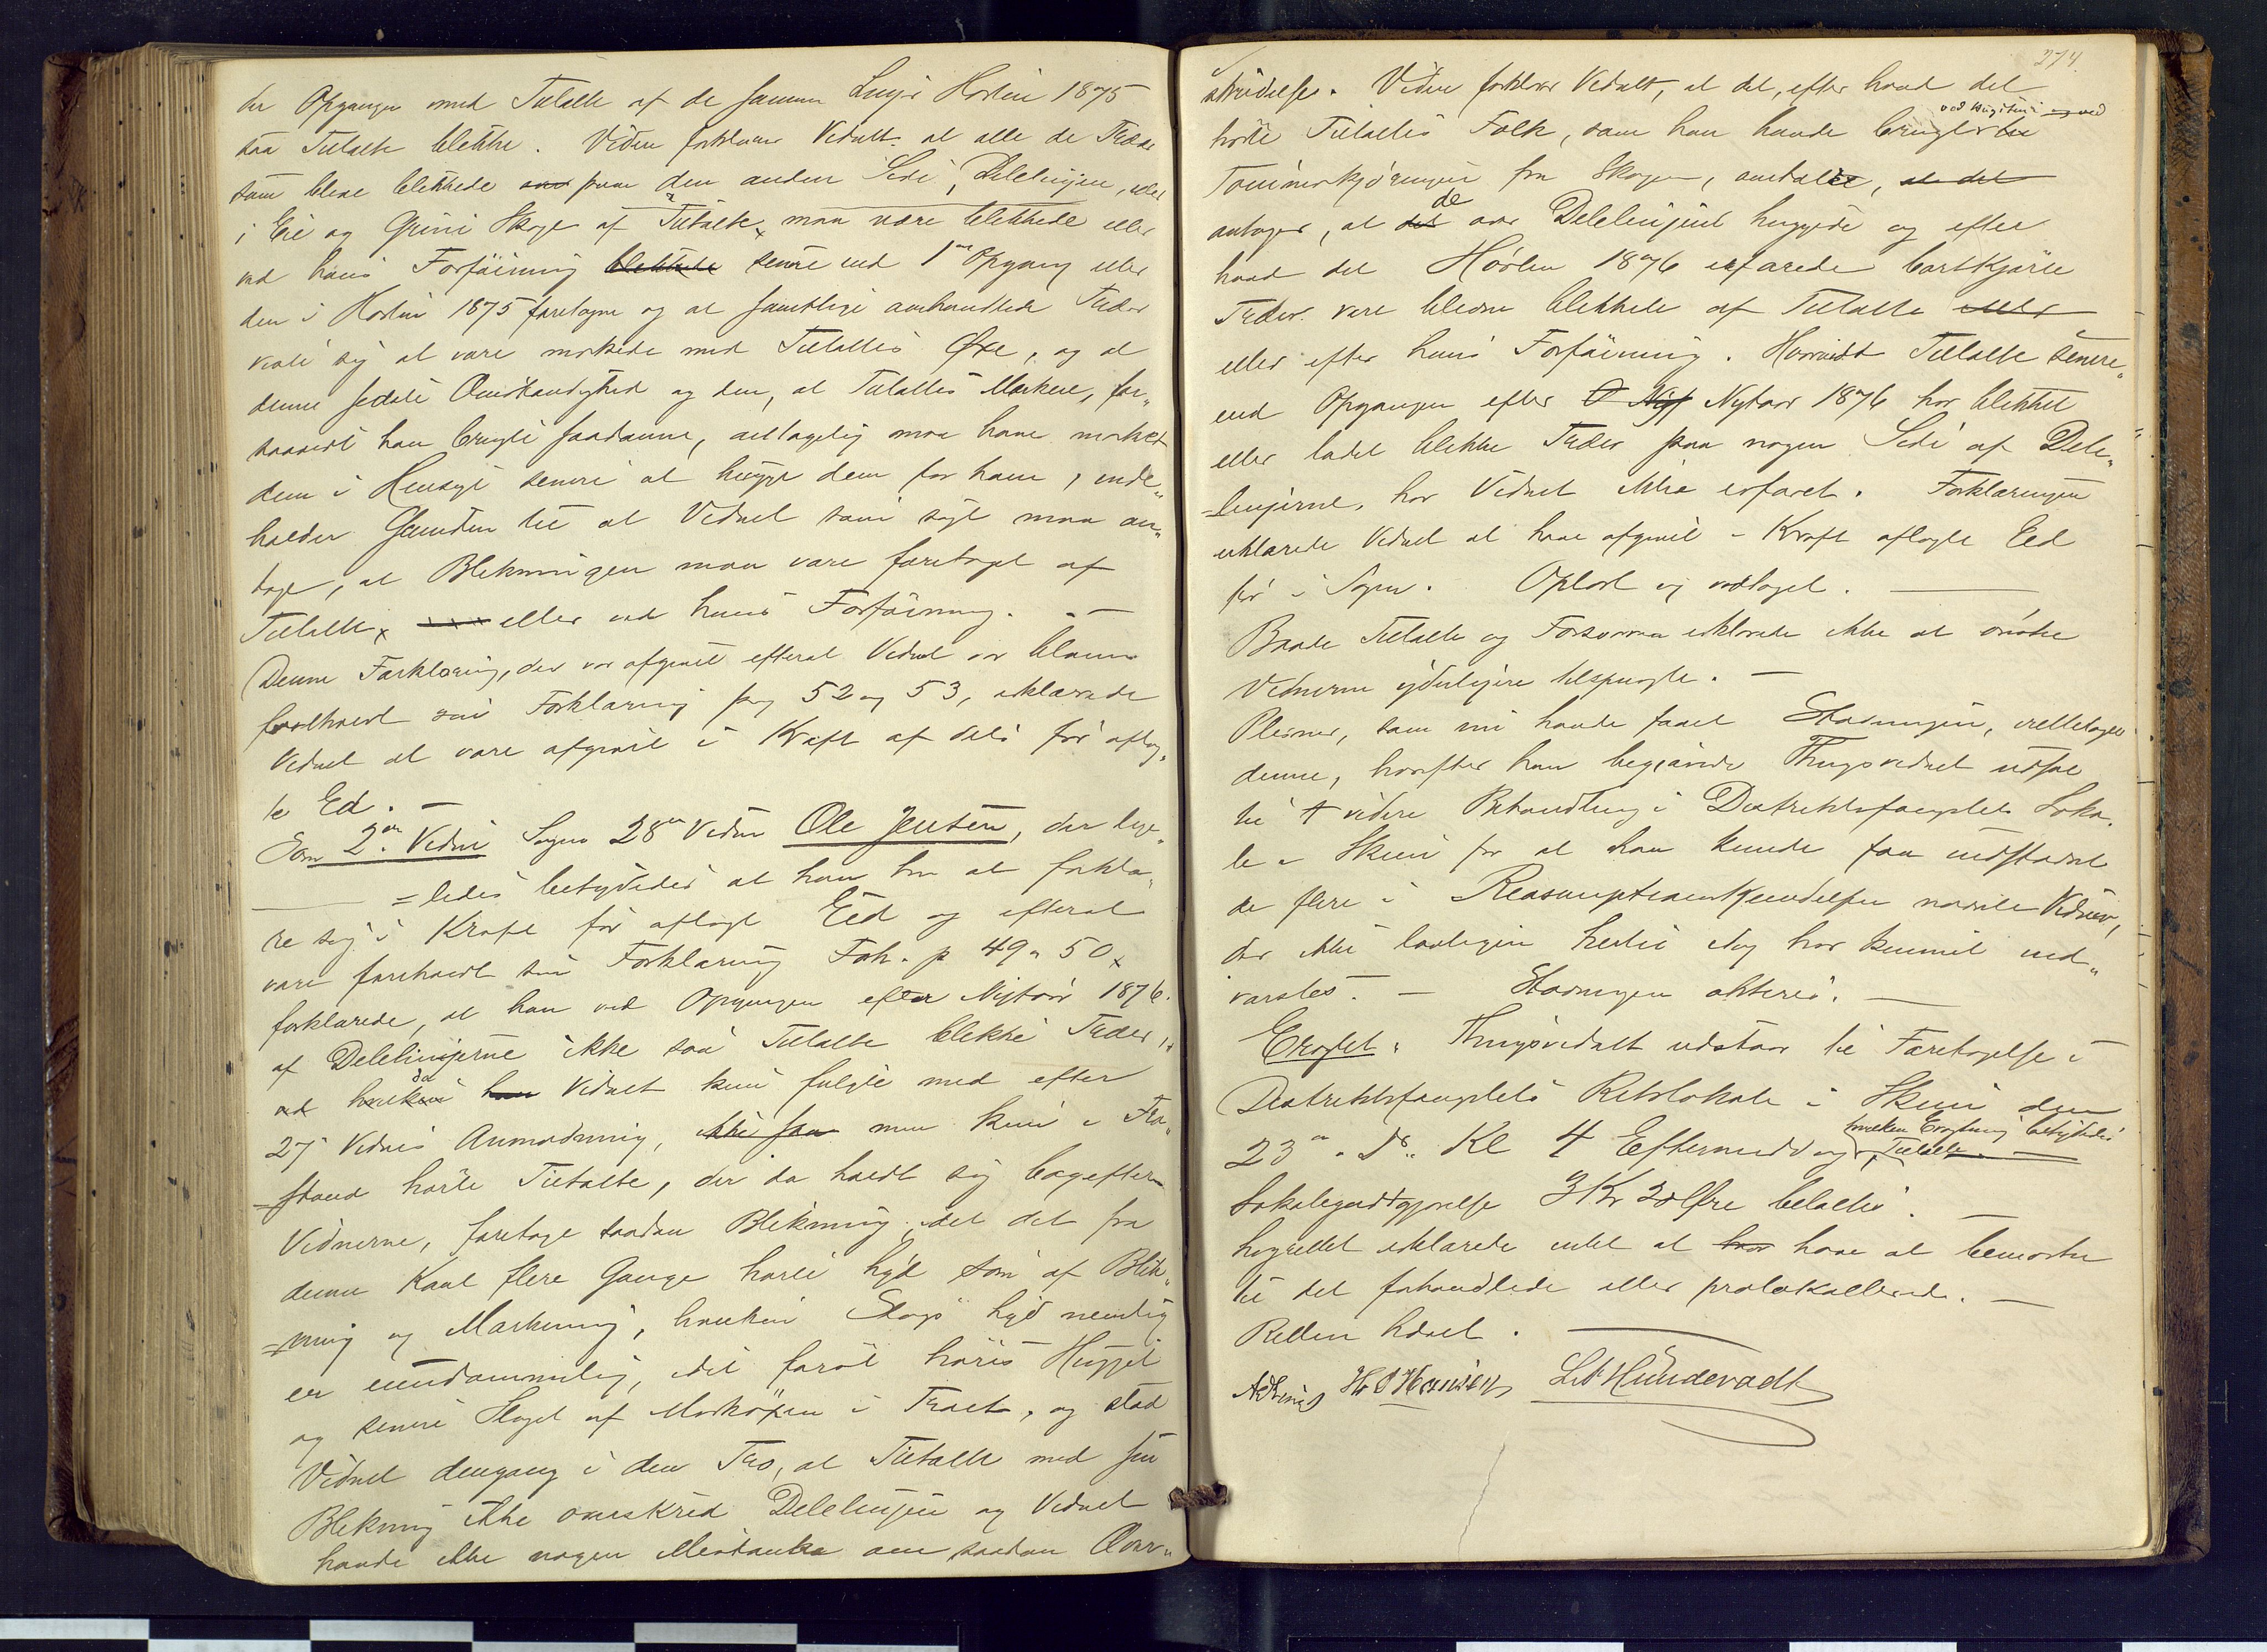 der Opgangen med Tiltalte af de samme Linjer Høsten 1875
saa Tiltalte blekke. Videre forklarer Vidnet at alle de Træer
som bleve blekkede paa den anden Side Delelinjen, eller
i Eie og Grini Skoge af Tiltalte, maa være blekkede eller
ved hans Forføining blekkede senere end 1ste Opgang eller
den i Høsten 1875 foretagne og at samtlige omhandlede Træer
viste sig at være merkede med Tiltaltes Øxe, og at
denne sidste Omstændighed og den, at Tiltaltes Merkere, for„
saavidt han brugte saadanne, antagelig maa have merket
dem i Hensigt senere at hugge dem for ham, inde„
holder Grunden til at Vidnet som sagt maa an„
tage, at Blekningen maa være foretaget af
Tiltalte, eller ved hans Forføining. —
Denne Forklaring, der var afgivet efterat Vidnet var bleven
foreholdt sin Forklaring pag 52 og 53, erklærede
Vidnet at være afgivet i Kraft af dets før aflag„
te Ed. —
Som 2det Vidne Sagens 28de Vidne Ole Jensen, der lige„
=ledes betydedes at han har at forkla„
re sig i Kraft før aflagt Eed og efterat
være foreholdt sin Forklaring Forh. p 49 o 50
forklarede, at han ved Opgangen efter Nytaar 1876
af Delelinjerne ikke saa Tiltalte blekke Træer,
ved hvilken da Vidnet kun fulgte med efter
27de Vidnes Anmodning, ikke saa men kun i Fra„
=stand hørte Tiltalte, der da holdt sig bagefter
Vidnerne, foretage saadan Blekning, idet det fra
denne Kant flere Gange hørte Lyd som af Blek„
=ning og Merkning, hvilken Slags Lyd nemlig
er eiendommelig, idet først høres Hugget
og senere Slaget af Merkøxen i Træet, og stod
Vidnet dengang i den Tro, at Tiltalte med sin
Blekning ikke overskred Delelinjen og Vidnet
havde ikke nogen Mistanke om saadan Over„
274.
skridelse. Videre forklarer Vidnet, at det, efter hvad det
ved Hugsten og ved
hørte Tiltaltes Folk, som han havde brugt
Tømmerkjøringen fra Skogen, omtale, at det
antager, at de over Delelinjen huggede og efter
hvad det Høsten 1876 erfarede bortkjørte
Træer vare blevne blekkede af Tiltalte eller
eller efter hans Forføining. Hvorvidt Tiltalte senere„
end Opgangen efter Nytaar 1876 har blekket
eller ladet blekke Træer paa nogen Side af Dele„
=linjerne, har Vidnet ikke erfaret. Forklaringen
erklærede Vidnet at have afgivet i Kraft aflagte Eed
før i Sagen. Oplæst og vedtaget. —
Baade Tiltalte og Forsvarer erklærede ikke at ønske
Vidnerne yderligere tilspurgte. —
Plesner, som nu havde faaet Stævningen, irettelagde
denne, hvorefter han begjærede Thingsvidnet udsat
til videre Behandling i Distriktsfængslets Loka„
le i Skien for at han kunde faa indstævnt
de flere i Reasumptionskjendelsen nævnte Vidner,
der ikke lovligen hertil idag har kunnet ind„
varsles. — Stævningen akteres. —
Eragtet. Thingsvidnet udstaar til Foretagelse i
Distriktsfængslets Retslokale i Skien den
23de ds. Kl 4 Eftermiddag, hvilken Eragtning betydedes
Tiltalte. —
Lokalegodtgjørelse 3 Kr 20 Øre betaltes. —
Lagrettet erklærede intet at have at bemærke
til det forhandlede eller protokollerede. —
Retten hævet. —
H O Hansen